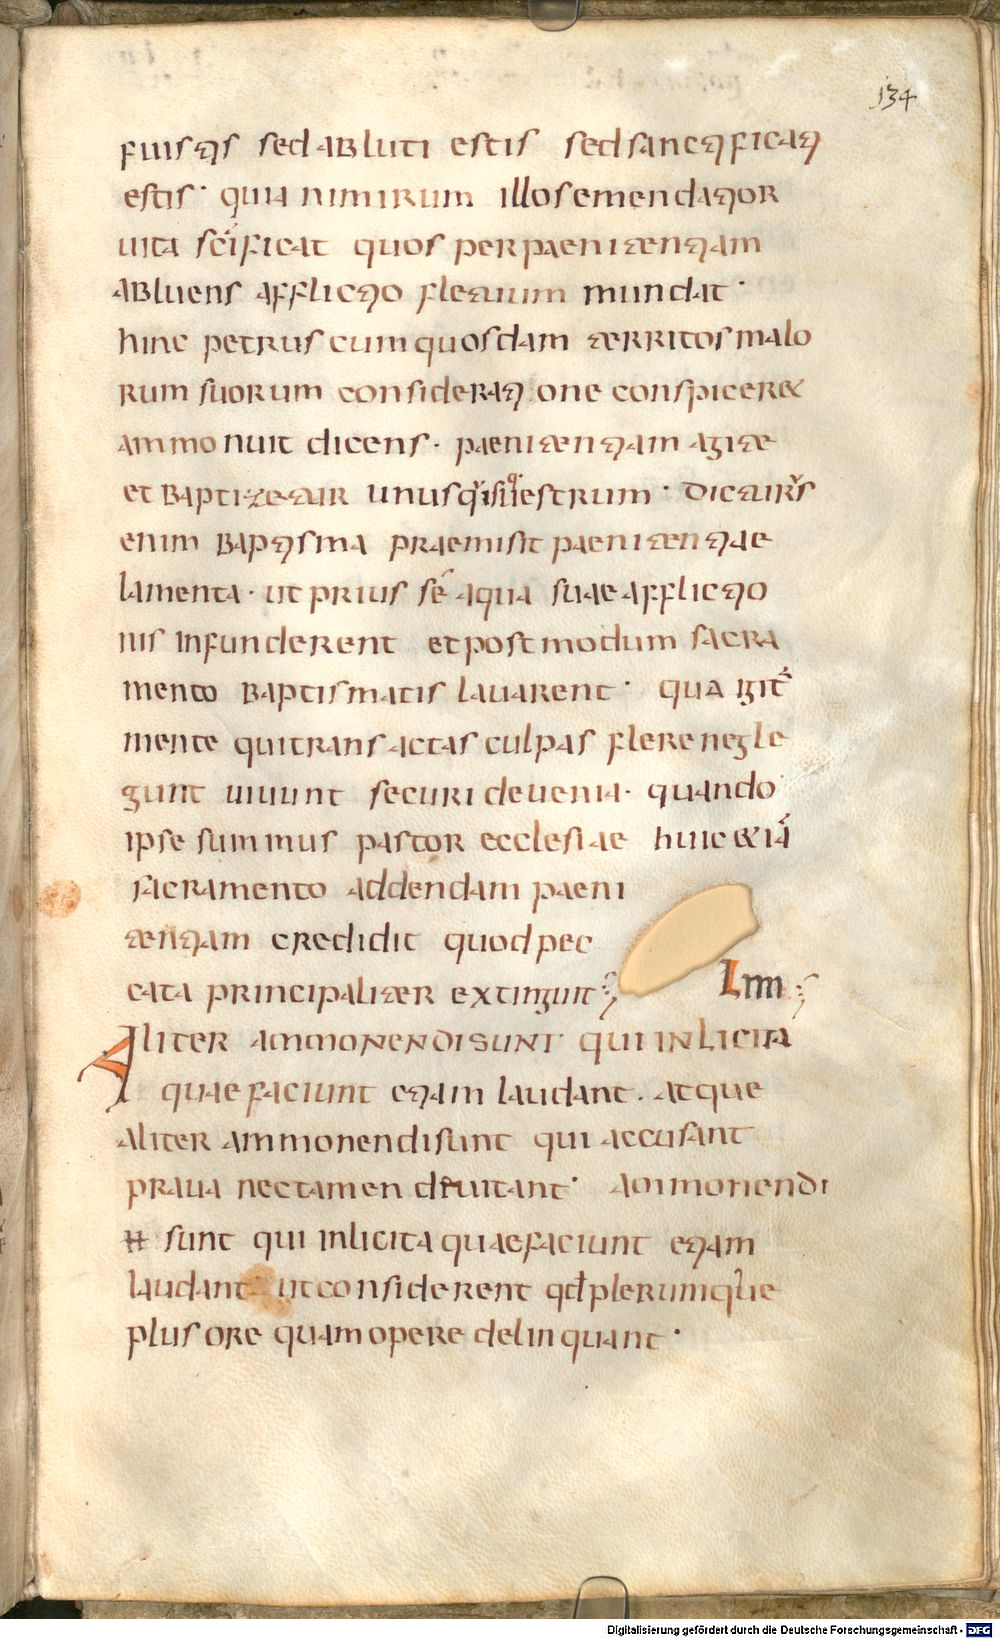 134
fuistis sed abluti estis sed sanctificati
estis· quia nimirum illos emendatior
uita scificat quos per paenitentiam
abluens afflictio fletuum mundat·
hinc petrus cum quosdam territos malo
rum suorum consideratione conspiceret
ammonuit dicens· paenitentiam agite
et baptizetur unusqisq uestrum· dicturs
enim baptisma praemisit paenitentiae
lamenta· ut prius se aqua suae afflictio
nis infunderent et postmodum sacra
mento baptismatis lauarent· qua igit
mente qui transactas culpas flere negle
gunt uiuunt securi de uenia· quando
ipse summus pastor ecclesiae huic etia
sacramento addendam paeni
tentiam credidit quod pec
cata principaliter extinguit
Lnn
Aliter ammonendi sunt qui inlicita
quae faciunt etiam laudant· atque
aliter ammonendi sunt qui accusant
praua nec tamen deuitant· Ammonendi
sunt qui inlicita quae faciunt etiam
laudant ut considerent qd plerumque
plus ore quam opere delinquant·
Digitalisierung gefördert durch die Deutsche Forschungsgemeinschaft - DFG